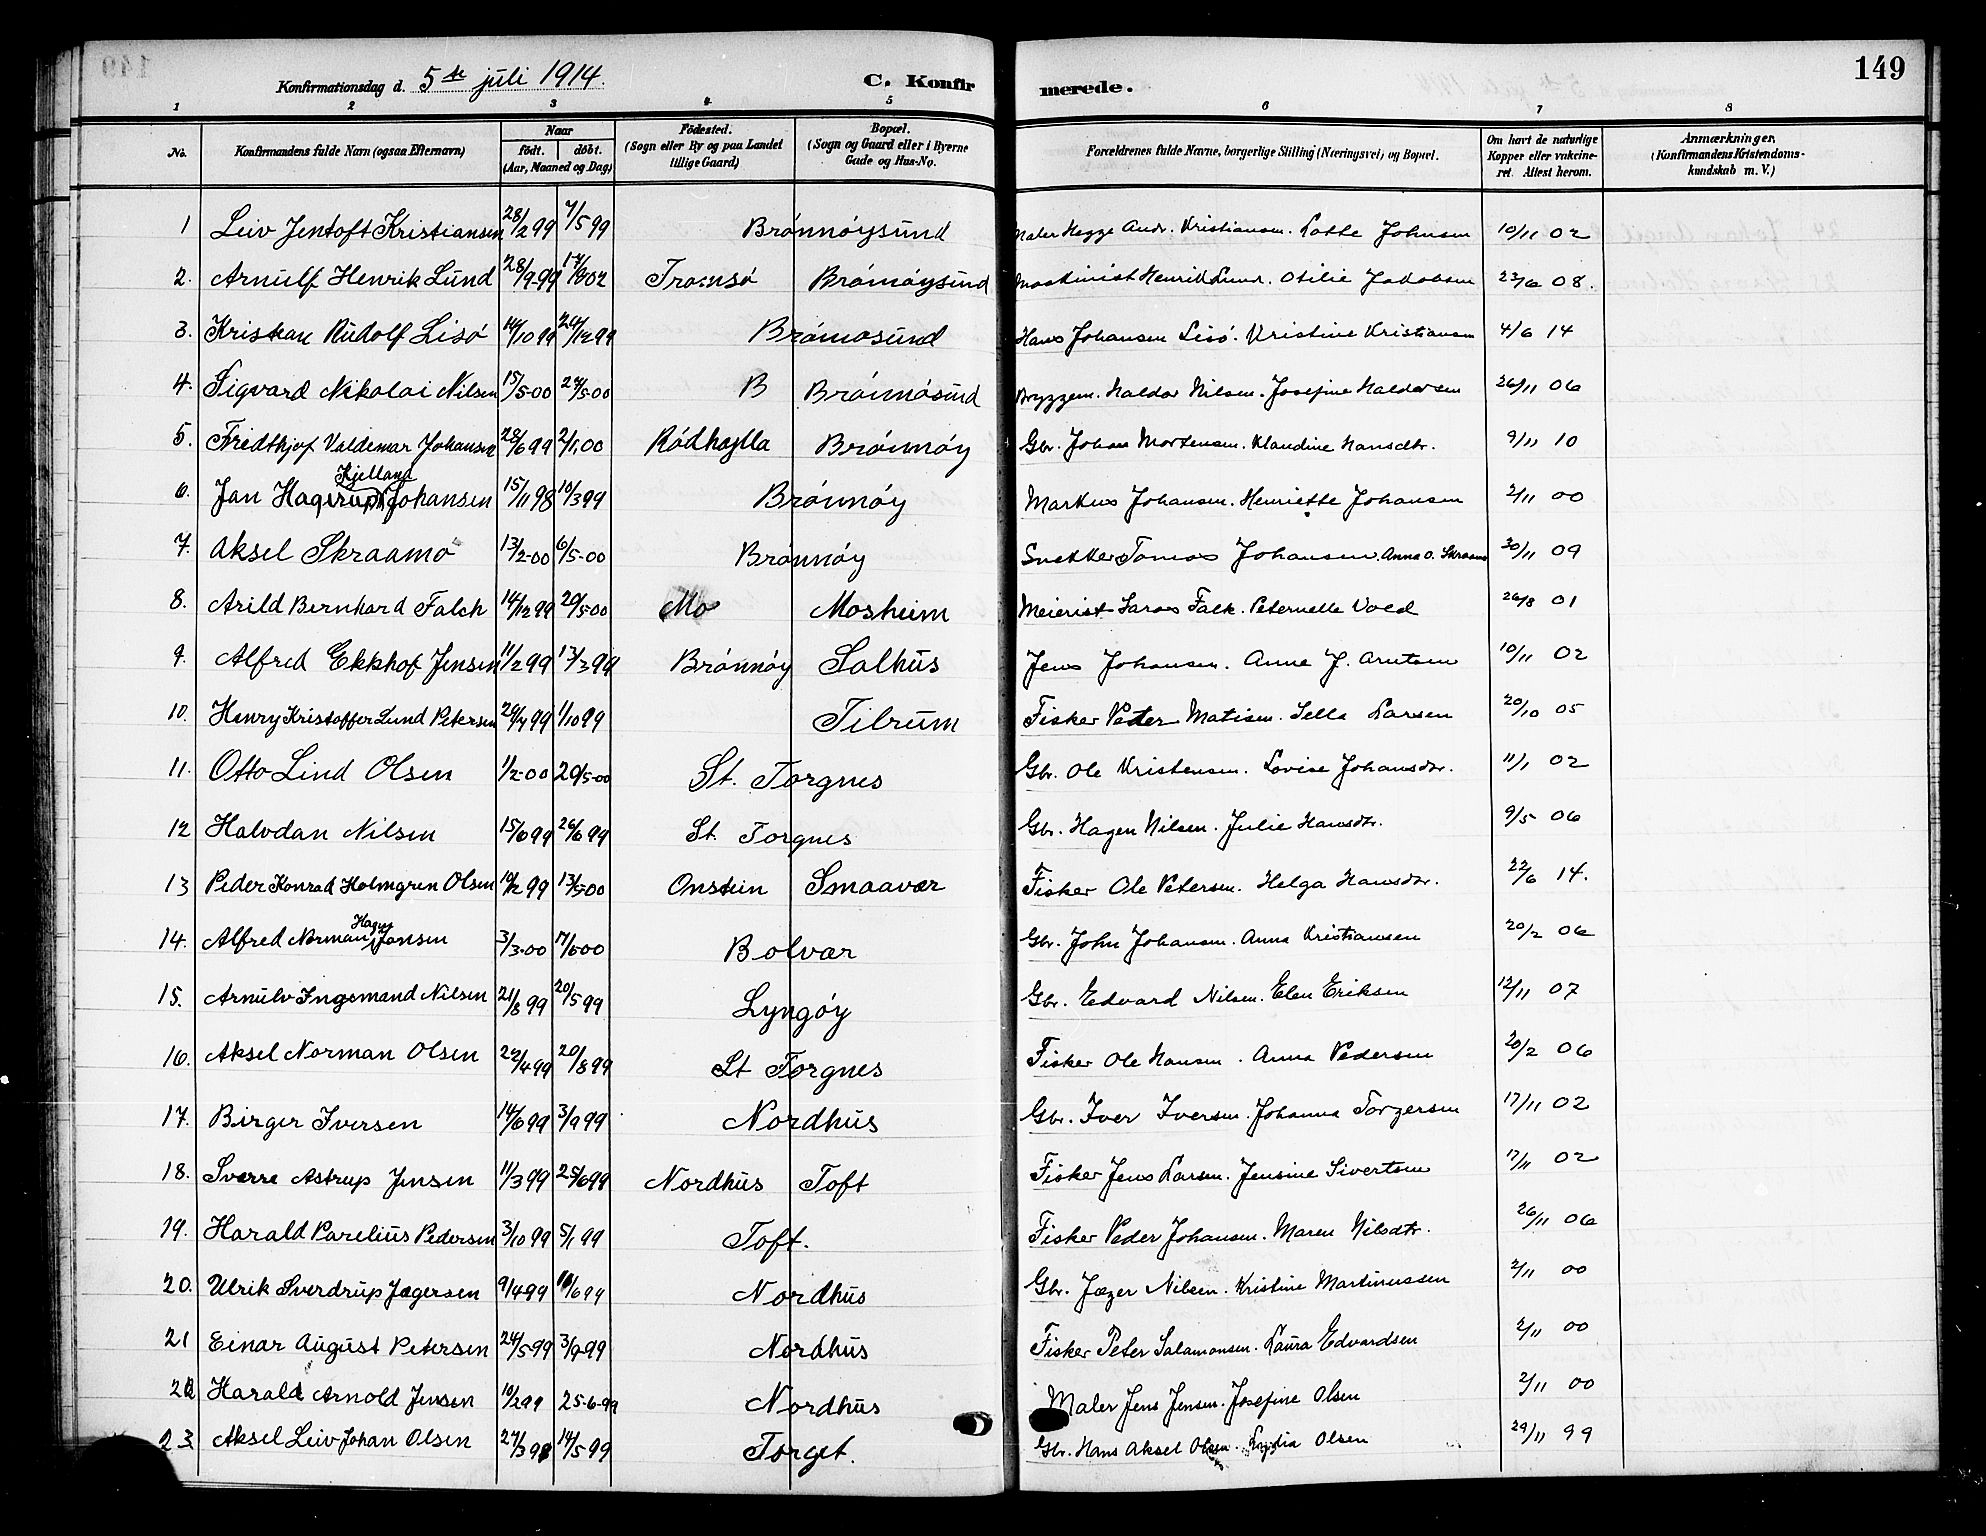 149
Konfirmationsdag d. 5te juli 1914. C. Konfirmerede.
1 2 3 4 5 6 7 8
No. Konfirmandens fulde Navn (ogsaa Efternavn) Naar født. døbt. (Aar, Maaned og Dag) Fødested. (Sogn eller By og paa Landet tillige Gaard) Bopæl. (Sogn og Gaard eller i Byerne Gade og Hus-No. Forældrenes fulde Navne, borgerlige Stilling (Næringsvei) og Bopæl. Om havt de naturlige Kopper eller vakcineret. Attest herom. Anmærkninger, (Konfirmandens Kristendomskundskab m. V.)
1 Leiv Jentoft Kristiansen 28/2 99 7/5 99 Brønnøysund Maler Hegge Andr. Kristiansen. Lotte Johnsen 10/11 02
2. Arnulf Henrik Lund 28/9-99 Tromsø Brønnøysund Maskinist Henrik Lund. Otilie Jakobsen 23/6 08.
3. Kristian Rudolf Lisø 14/10 99 24/12 99 Brønnøsund Hans Johansen Lisø. Kristine Kristiansen 4/6 14
4. Sigvard Nikolai Nilsen 15/5-00 24/5-00 B Brønnøsund Bryggem. Haldor Nilsen. Josefine Haldorsen 26/11 06
5. Fredthjof Valdemar Johansen 28/6 99 2/1.00 Rødhylla Brønnøy Gbr. Johan Mortensen. Klaudine Hansdtr. 9/11 10
6. Jan Hagerup Kjelland Johansen 15/11 98 10/3 99 Brønnøy Markus Johansen. Henriette Johansen 2/11 00
7. Aksel Skraamo 13/2-00 6/5-00 Brønnøy Snekker Tomas Johansen. Anna O. Skraamo 30/11 09
8. Arild Bernhard Falch 14/12 99 20/5-00 Mo Mosheim Meierist Lars Falk. Peternelle Vold 26/8 01
9. Alfred Ekkhof Jensen 11/2 99 13/3 99 Brønnøy Salhus Jens Johansen. Anne J. Arntsen 10/11 02
10. Henry Kristoffer Lund Petersen 29/7 99 1/10 99 Tilrum Fisker Peder Matisen. Sella Larsen 20/10 05
11. Otto Lind Olsen 1/2-00 20/5-00 St. Torgnes Gbr. Ole Kristensen. Lovise Johansdtr. 11/1 02
12 Halvdan Nilsen 15/6 99 26/6 99 St. Torgnes Gbr. Hagen Nilsen. Julie Hansdtr. 9/5 06
13 Peder Konrad Holmgren Olsen 19/2 99 13/5-00 Onstein Smaavær Fisker Ole Petersen. Helga Hansdtr. 22/6 14.
14. Alfred Norman Hagny Jansen 3/3-00 17/6 00 Bolvær Gbr. John Johansen. Anna Kristiansen 20/2 06
15. Arnulv Ingemand Nilsen 21/8 99 20/5 99 Lyngøy Gbr. Edvard Nilsen. Elen Eriksen 12/11 07
16. Aksel Norman Olsen 22/4 99 20/8 99 St Torgnes Fisker Ole Hansen. Anna Pedersen 20/2 06
17. Birger Iversen 14/6 99 3/9 99 Nordhus Gbr. Iver Iversen. Johanna Torgersen 17/11 02
18. Sverre Astrup Jensen 11/3 99 25/6 99 Nordhus Toft Fisker Jens Larsen. Jensine Sivertsen 17/11 02
19. Harald Parelius Pedersen 3/10 99 5/1 99 Toft. Fisker Peder Johansen. Maren Nilsdtr. 26/11 06
20. Ulrik Sverdrup Jægersen 9/4-99 11/6 99 Nordhus Gbr. Jæger Nilsen. Kristine Martinussen 2/11 00
21 Einar August Petersen 24/5-99 3/9-99 Nordhus Fisker Peter Salamonsen. Laura Edvardsen 2/11 00
22 Harald Arnold Jensen 10/2 99 25-6-99 Nordhus Maler Jens Jensen. Josefine Olsen 2/11 00
23. Aksel Leiv Johan Olsen 27/3 98 14/5 99 Torget. Gbr. Hans Aksel Olsen. Lydia Olsen 29/11 99